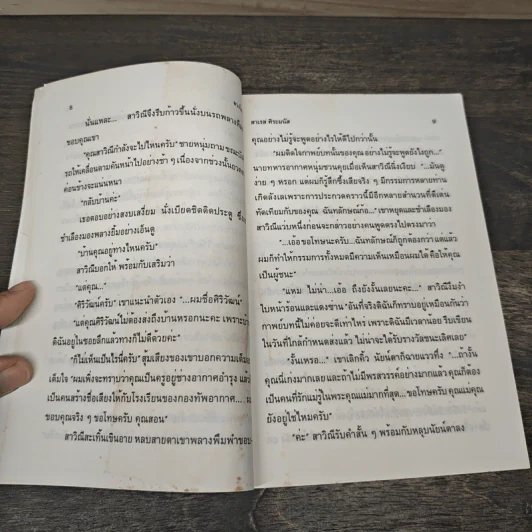 ๘
นั่นแหละ... สาวิณีจึงรีบก้าวขึ้นนั่งบนรถพลาง
ขอบคุณเขา
"คุณสาวิณีกำลังจะไปไหนครับ" ชายหนุ่มถาม ขณะ
รถให้เคลื่อนตามคันหน้าไปอย่างช้า ๆ เนื่องจากช่วงนั้น
ค่อนข้างจะแน่นหนา
"กลับบ้านค่ะ"
เธอตอบอย่างสงบเสงี่ยม นั่งเบียดชิดติดประตู
ชำเลืองมองพลางยิ้มอย่างเอ็นดู
"บ้านคุณอยู่ทางไหนครับ"
สาวิณีบอกให้ พร้อมกับเสริมว่า
"แต่คุณ..."
"ศิริวัฒน์ครับ" เขาแนะนำตัวเอง "...ผมชื่อศิริวัฒน์"
"แต่คุณศิริวัฒน์ไม่ต้องส่งถึงบ้านหรอกนะคะ เพราะ
ดิฉันอยู่ในซอยลึกแล้วทางก็ไม่ดีด้วยค่ะ"
"ก็ไม่เห็นเป็นไรนี่ครับ" สุ้มเสียงของเขาบอกความเต็ม
เต็มใจ "ผมเพิ่งจะทราบว่าคุณเป็นครูอยู่ช่างอากาศอำรุง แล้ว
เป็นคนสร้างชื่อเสียงให้กับโรงเรียนของกองทัพอากาศ...
ขอบคุณจริง ๆ ขอโทษครับ คุณสอน"
สาวิณีสะเทิ้นเขินอาย หลบสายตาเขาพลางพึมพำขอบ
สาเรส ศิระมนัส
๙
คุณอย่างไม่รู้จะพูดอย่างไรให้ดีไปกว่านั้น
"ผมติดใจภาพยับทนั้นของคุณ อย่างไม่รู้จะพูดยังไงถูก..."
นายทหารอากาศหนุ่มชวนคุยเมื่อเห็นสาวิณีนิ่งเงียบ "...มันดู
ง่าย ๆ หรอก แต่ผมก็รู้สึกซึ้งเสียจริง ๆ มีกรรมการหลายท่าน
เกิดลังเลเพราะการประกวดคราวนี้มีอีกหลายสำนวนที่ดีเด่น
คัดเทียมกับของคุณ ฉันทลักษณ์ก็..." เขาหยุดและชำเลืองมอง
สาวิณีแวบหนึ่งก่อนจะกล่าวอย่างคนพูดตรงไปตรงมาว่า
"...เอ้อ ขอโทษนะครับ...ฉันทลักษณ์ก็ถูกต้องกว่า แต่แล้ว
ผมก็ทำให้กรรมการทั้งหมดมีความเห็นเหมือนผมได้ คือให้คุณ
เป็นผู้ชนะ"
"แหม ไม่น่า...เอ้อ ถึงยังงั้นเลยนะคะ..." สาวิณียิ้มจาง
ใบหน้าร้อนและแดงซ่าน "อันที่จริงดิฉันก็ทราบอยู่เหมือนกันว่า
ภาพยับทนี้ไม่ค่อยจะดีเท่าไหร่ เพราะดิฉันมีเวลาน้อย รีบเขียน
ในวันที่ใกล้กำหนดส่งแล้ว ไม่น่าจะได้รับรางวัลชนะเลิศเลย"
"งั้นเหรอ..." เขาเลิกคิ้ว นัยน์ตาก็ฉายแววทึ่ง "...ถ้างั้น
คุณนี่เก่งมากเลย และถ้าไม่มีพรสวรรค์อย่างมากแล้ว คุณก็ต้อง
เป็นคนที่รักแม่รู้ในพระคุณแม่มากที่สุด...ขอโทษครับ คุณแม่คุณ
ยังอยู่ใช่ไหมครับ"
"ค่ะ" สาวิณีรับคำสั้น ๆ พร้อมกับหลุบนัยน์ตาลง